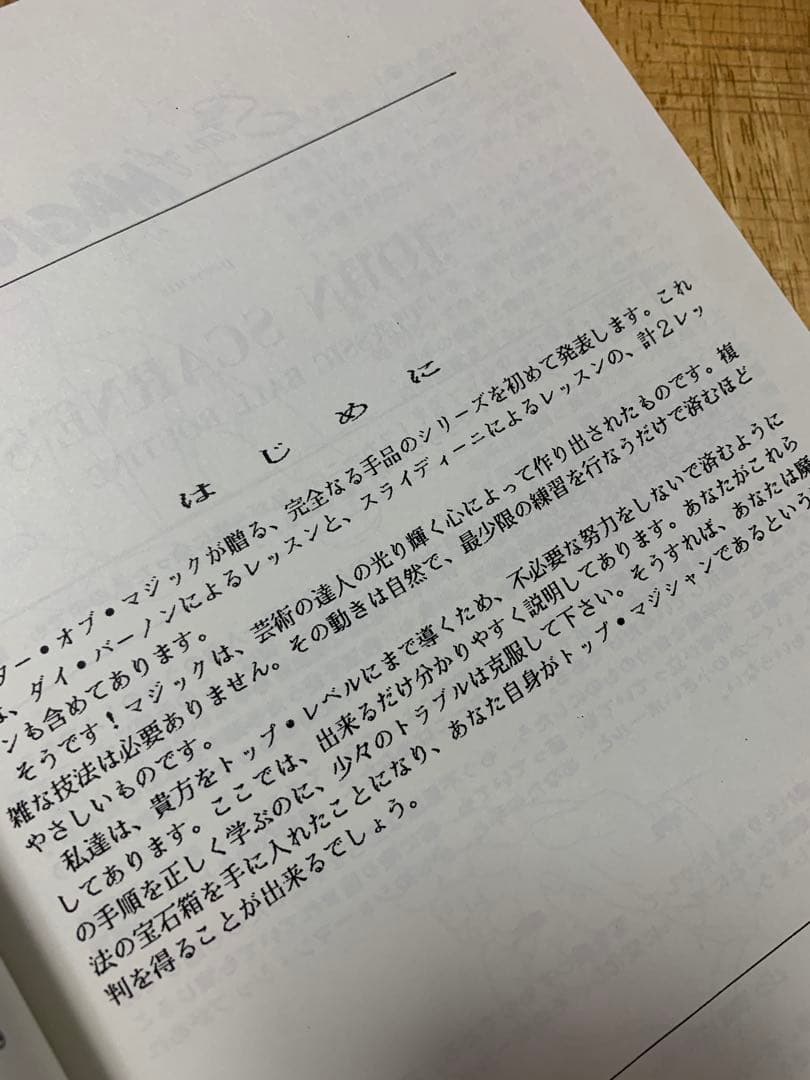 はじめに
ター・オブ・マジックが贈る、完全なる手品のシリーズを初めて発表します。これ
は、ダイ・バーノンによるレッスンと、スライディーニによるレッスンの、計2レッ
ンも含めてあります。
そうです！マジックは、芸術の達人の光り輝く心によって作り出されたものです。複
雑な技法は必要ありません。その動きは自然で、最少限の練習を行なうだけで済むほど
やさしいものです。
私達は、貴方をトップ・レベルにまで導くため、不必要な努力をしないで済むように
してあります。ここでは、出来るだけ分かりやすく説明してあります。あなたがこれら
の手順を正しく学ぶのに、少々のトラブルは克服して下さい。そうすれば、あなたは魔
法の宝石箱を手に入れたことになり、あなた自身がトップ・マジシャンであるという
判を得ることが出来るでしょう。